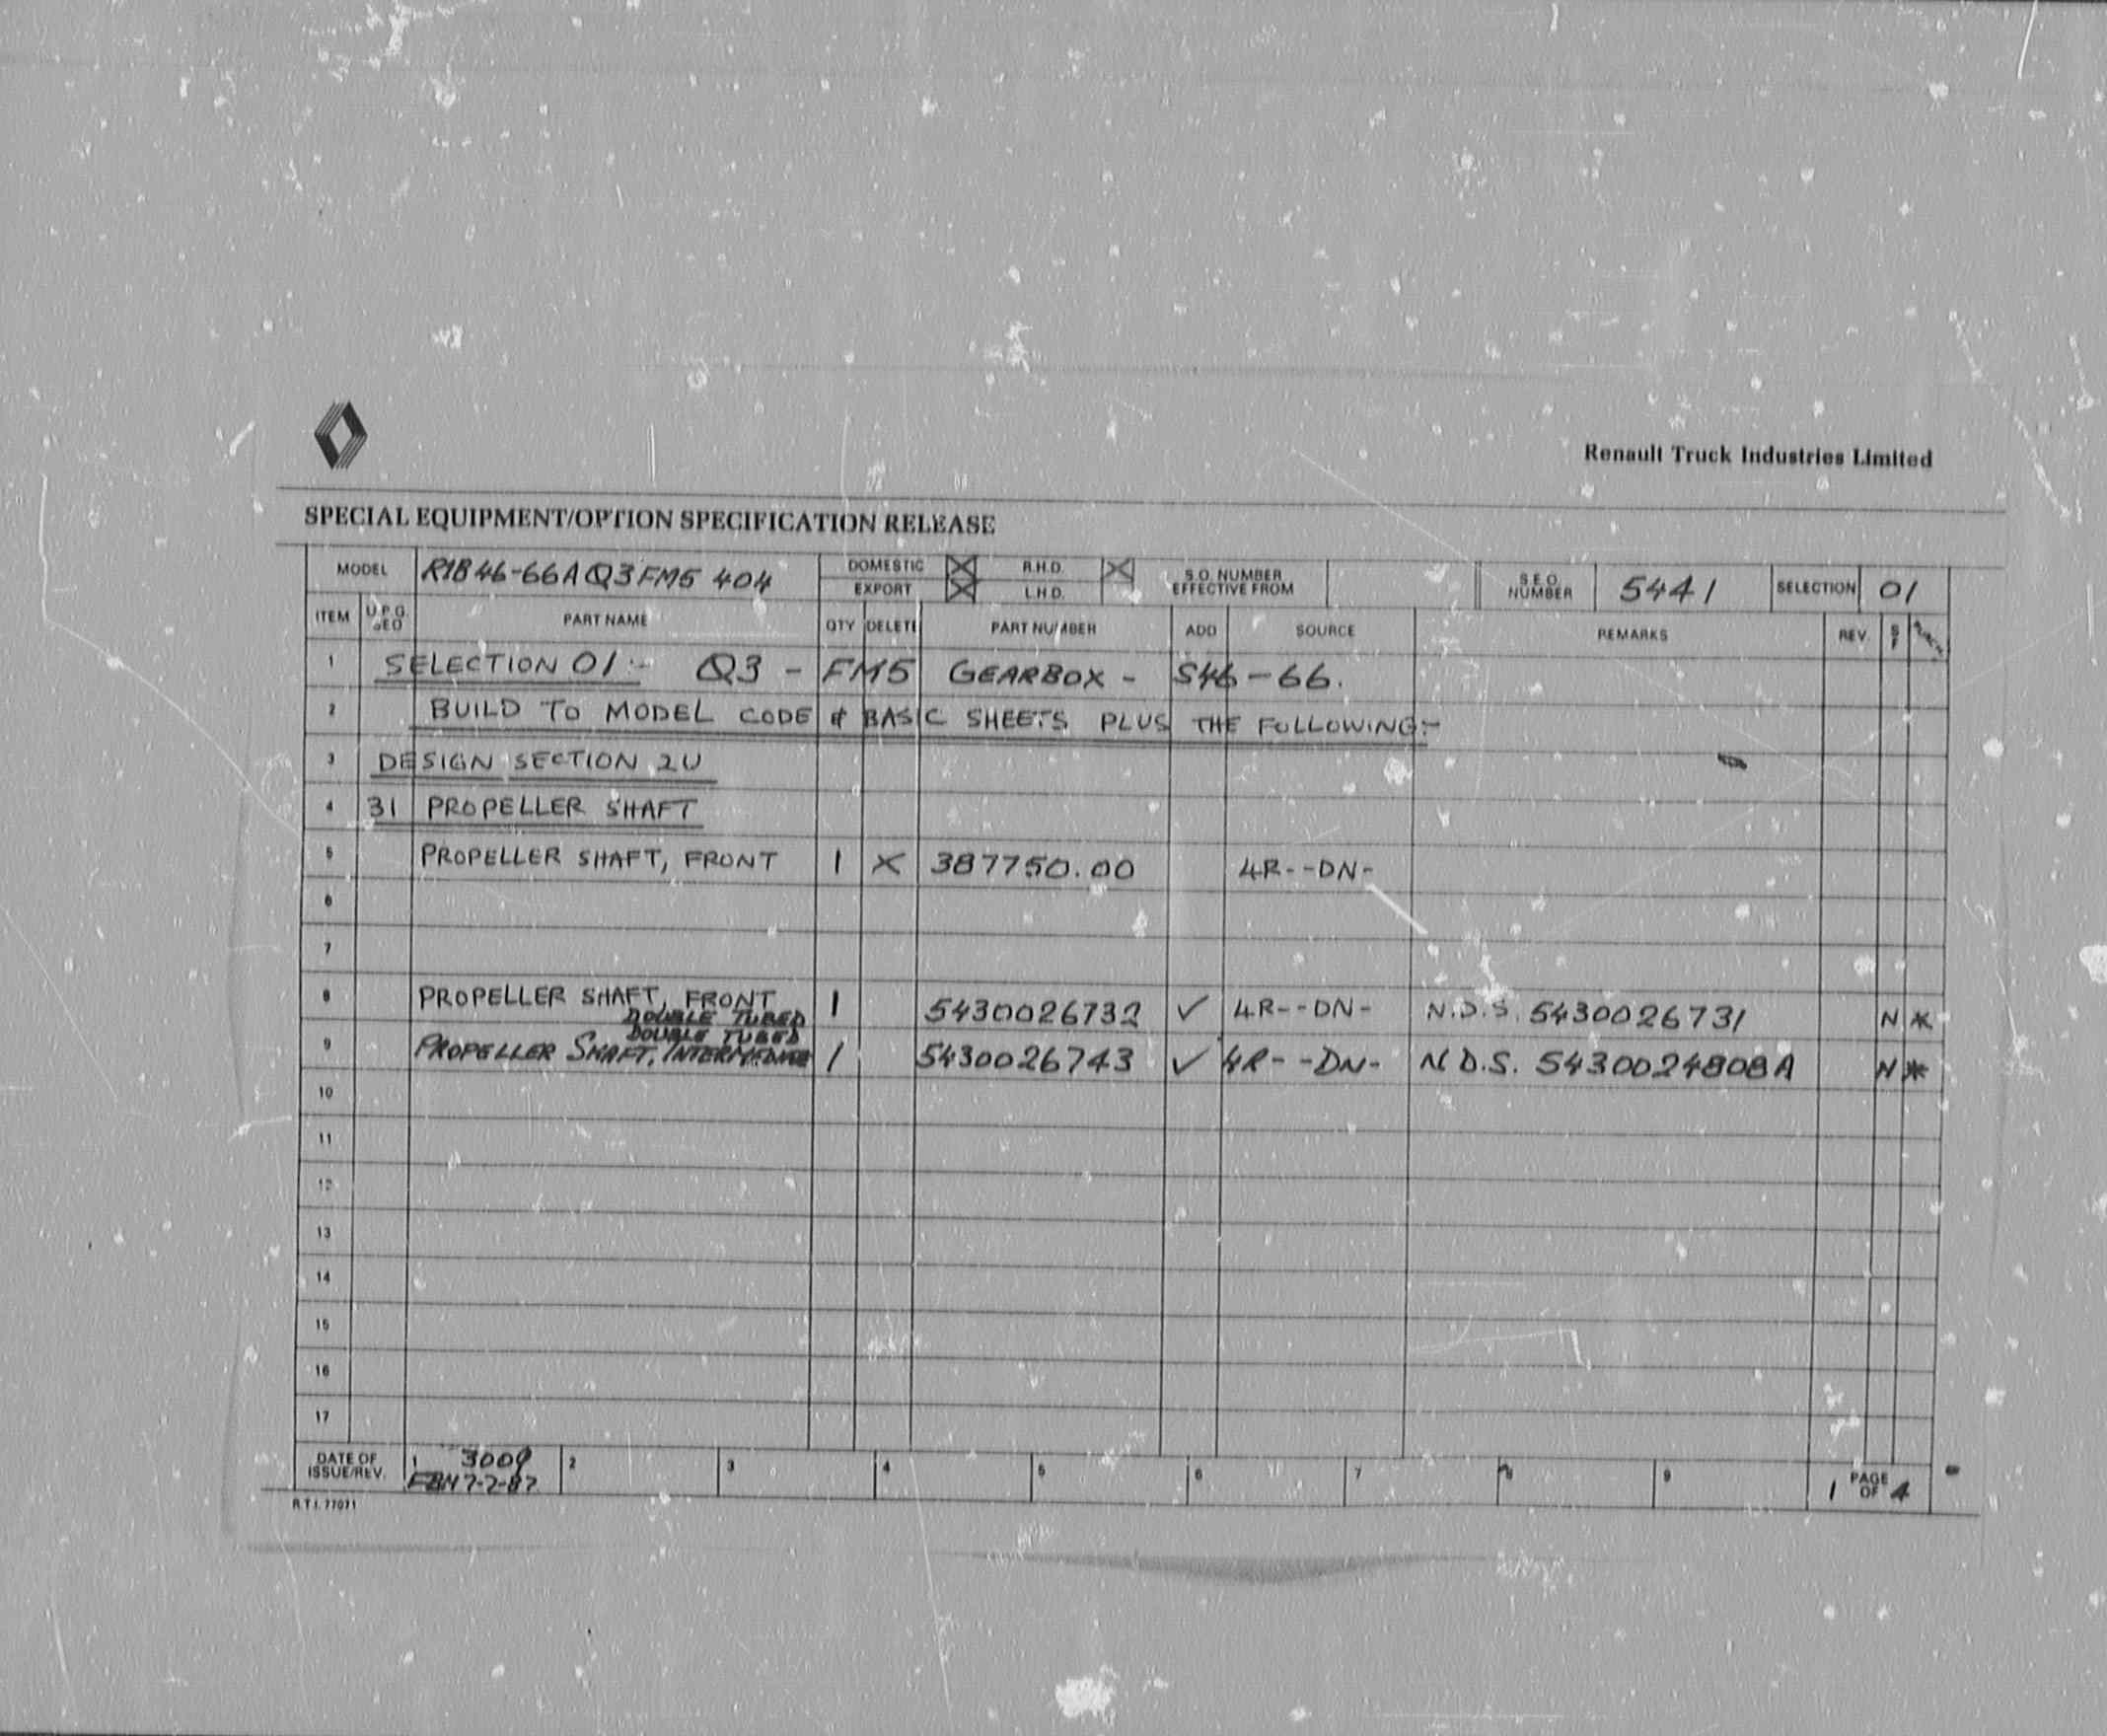 Renault Truck Industries Limited
SPECIAL EQUIPMENT/OPTION SPECIFICATION RELEASE
MODEL R1B46-66AQ3FM5 404 DOMESTIC X R.H.D. X S.O. NUMBER EFFECTIVE FROM S.E.O. NUMBER 5441 SELECTION 01
EXPORT X L.H.D.
ITEM U.P.G. PART NAME QTY DELETE PART NUMBER ADD SOURCE REMARKS REV.
1 SELECTION 01:- Q3 - FM5 GEARBOX - S46-66.
2 BUILD TO MODEL CODE & BASIC SHEETS PLUS THE FOLLOWING:-
3 DESIGN SECTION 2U
4 31 PROPELLER SHAFT
5 PROPELLER SHAFT, FRONT 1 X 387750.00 4R--DN-
6
7
8 PROPELLER SHAFT, FRONT 1 5430026732 ✓ 4R--DN- N.D.S. 5430026731 N *
DOUBLE TUBED
DOUBLE TUBED
9 PROPELLER SHAFT, INTERMEDIATE 1 5430026743 ✓ 4R--DN- N.D.S. 5430024808A N *
10
11
12
13
14
15
16
17
DATE OF ISSUE/REV. 1 3009 2 3 4 5 6 7 8 9 1 PAGE OF 4
7-7-87
R.T.I. 77071